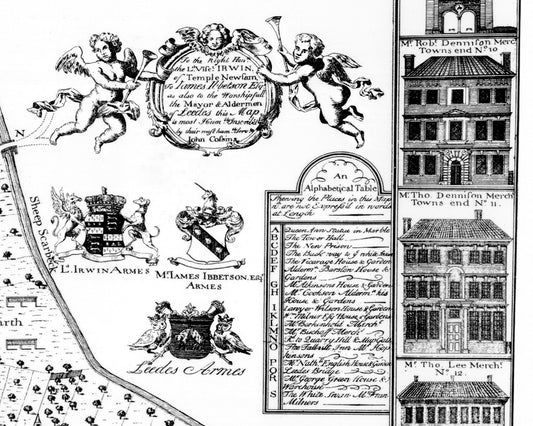 To the Right Honble
the Ld Visct IRWIN,
of Temple Newsam,
to James Ibbetson Esqr
as also to the Worshipfull
the Mayor & Aldermen
of Leedes this Map
is most Hum
by their most hum
John Cossins
N
Sheep Scar
Ld. IRWIN ARMES
Mr. IAMES IBBETSON, ESQr
ARMES
Leedes Armes
An
Alphabetical Table
Shewing the Places in this Map
are not Express'd in words
at Length
A Queen Ann Statue in Marble
B The Tower Hall
C The New Prison
D The Back way to
E The Vicarage House & Garden
F Aldermn. Barstow House &
Gardens
G Mr. Atkinsons House & Gardens
H Mr. Cookson Alderm. his
House & Gardens
I Lawyer Wilson House & Garden
K Wm. Milner Esqr House & Gardens
L
M Mr. Bischoff
N to Quarry Hill &
O The Talbutt Inn Mr.
P Mr. Nath. English House & Garden
Leedes Bridge
Q Mr. George Green House &
R Warehouse
S The White Swan Mr. Ann
Milners
Mr. Robt. Dennison Merc
Towns end No. 10
Mr. Tho. Dennison Merch
Towns end No. 11.
Mr. Tho Lee Merch
No. 12.